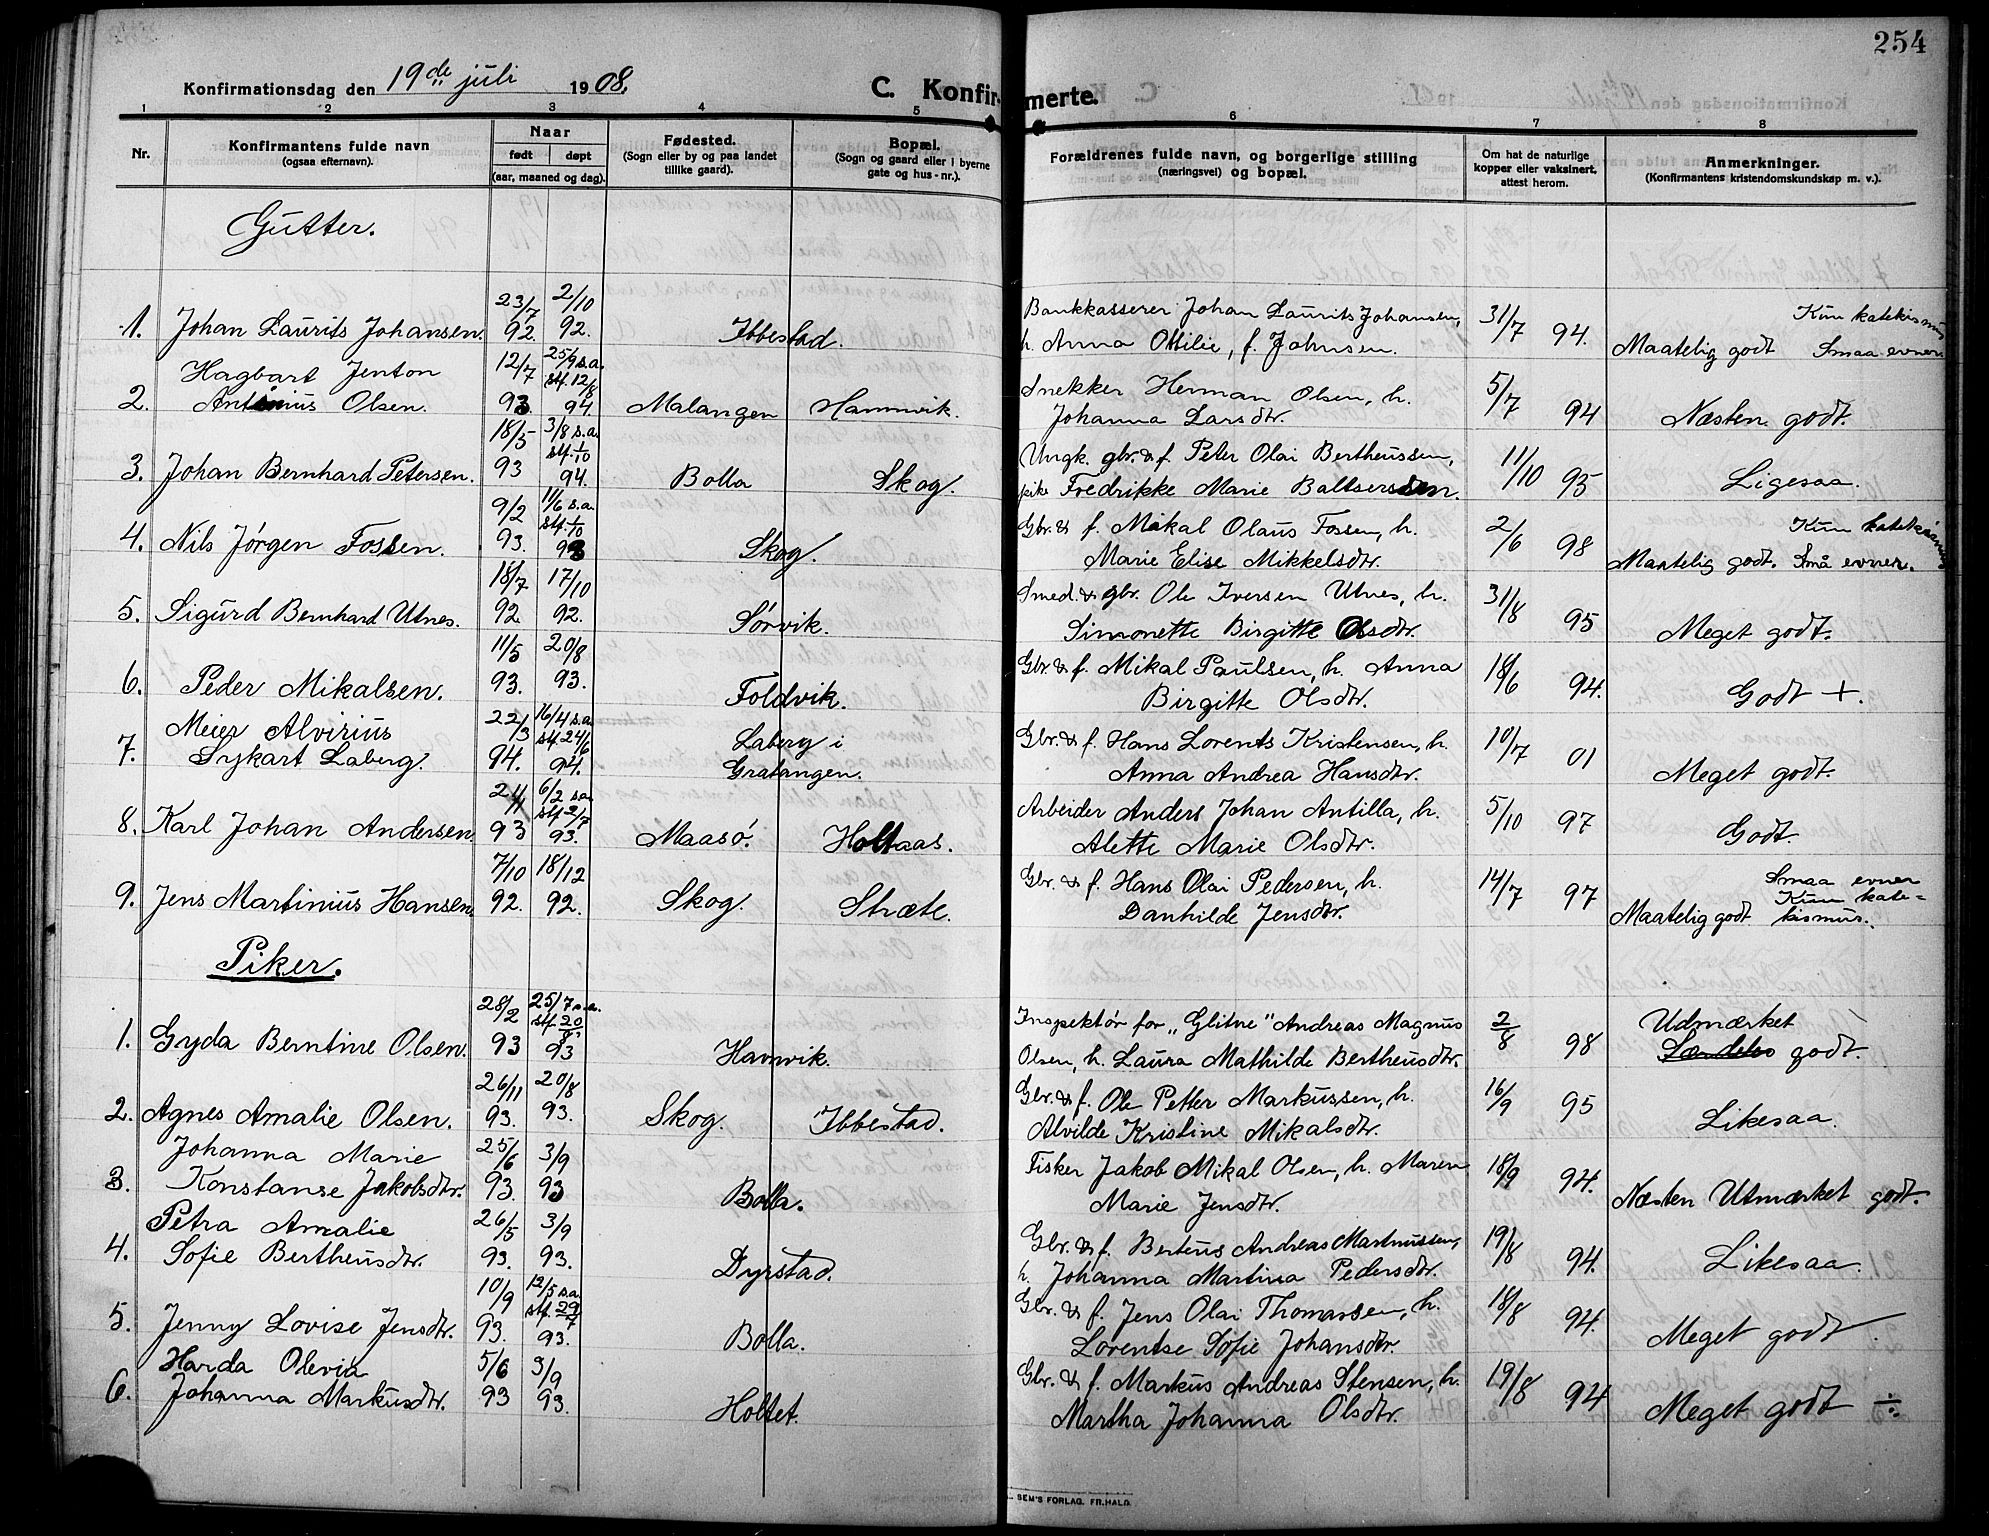 254
Konfirmationsdag den 19de juli 1908.
C. Konfirmerte.
1 2 3 4 5 6 7 8
Nr.
Konfirmantens fulde navn
(ogsaa efternavn).
Naar
født døpt
(aar, maaned og dag).
Fødested.
(Sogn eller by og paa landet
tillike gaard).
Bopæl.
(Sogn og gaard eller i byerne
gate og hus-nr.).
Forældrenes fulde navn, og borgerlige stilling
(næringsvei) og bopæl.
Om hat de naturlige
kopper eller vaksinert,
attest herom.
Anmerkninger.
(Konfirmantens kristendomskundskap m. v.).
Gutter.
23/7 2/10 Bankkasserer Johan Laurits Johansen, 31/7 Kun katekismus
1. Johan Laurits Johansen. 92. 92. Ibbestad. h. Anna Ottilie, f. Johnsen. 94. Maatelig godt Smaa evner.
Hagbart Jenton 12/7 25/9 s.a. stf. 12/8 Snekker Herman Olsen, h. 5/7
2. Antonius Olsen. 93. 94. Malangen Hamnvik. Johanna Larsdtr. 94 Næsten godt.
18/5 3/8 s.a. stf. 1/10 Ungk. gbr. & f. Peter Olai Bertheussen, 11/10
3. Johan Bernhard Petersen. 93 94. Bolla Skog. pike Fredrikke Marie Baltsersen. 95 Ligesaa.
9/2 11/6 s.a. stf. 1/10 Gbr. & f. Mikal Olaus Fossen, h. 2/6 Kun katekismus
4. Nils Jørgen Fossen. 93. 93 Skog. Marie Elise Mikkelsdtr. 98 Maatelig godt. Små evner.
18/7 17/10 Smed. & gbr. Ole Iversen Utnes, h. 31/8
5. Sigurd Bernhard Utnes. 92 92. Sørvik. Simonette Birgitte Olsdtr. 95 Meget godt.
11/5 20/8 Gbr. & f. Mikal Paulsen, h. Anna 18/6
6. Peder Mikalsen. 93. 93. Foldvik. Birgitte Olsdtr. 94. Godt +.
Meier Alvirius 22/3 16/4 s.a. stf. 24/6 Laberg i Gbr. & f. Hans Lorents Kristensen, h. 10/7
7. Sykart Laberg. 94. 94. Gratangen. Anna Andrea Hansdtr. 01 Meget godt.
6/2 s.a. Arbeider Anders Johan Antilla, h. 5/10
8. Karl Johan Andersen 93 93. Maasø. Holtaas. Alette Marie Olsdtr. 97 Godt.
7/10 18/12 Gbr. & f. Hans Olai Pedersen, h. 14/7 Smaa evner
9. Jens Martinius Hansen 92. 92. Skog. Stræte. Danhilde Jensdtr. 97 Maatelig godt Kun kate-
kismus.
Piker.
28/2 25/7 s.a. stf. 20/8 Inspektør for „Glitne" Andreas Magnus 2/8 Udmærket
1. Gyda Berntine Olsen. 93 93 Havnvik. Olsen, h. Laura Mathilde Bertheusdtr. 98 godt.
26/11 20/8 Gbr. & f. Ole Petter Markussen, h. 16/9
2. Agnes Amalie Olsen. 93. 93. Skog. Ibbestad. Alvilde Kristine Mikalsdtr. 95 Likesaa.
Johanna Marie 25/6 3/9 Fisker Jakob Mikal Olsen, h. Maren 18/9
3. Konstanse Jakobsdtr. 93. 93 Bolla. Marie Jensdtr. 94. Næsten Utmærket godt.
Petra Amalie 26/5 3/9 Gbr. & f. Berteus Andreas Martinussen, 19/8
4. Sofie Bertheusdtr. 93. 93. Dyrstad. h. Johanna Martina Pedersdtr. 94. Likesaa.
10/9 12/5 s.a. stf. 29/7 Gbr. & f. Jens Olai Thomassen, h. 18/8
5. Jenny Lovise Jensdtr. 93. 93. Bolla. Lorentse Sofie Johansdtr. 94. Meget godt.
Harda Olevia 5/6 3/9 Gbr. & f. Markus Andreas Stensen, h. 19/8
6. Johanna Markusdtr. 93 93. Holtet. Martha Johanna Olsdtr. 94 Meget godt ÷.
SEM'S FORLAG. FR.HALD.